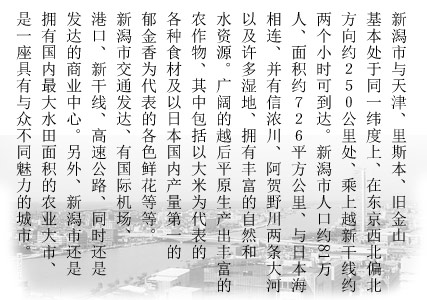 新潟市与天津、里斯本、旧金山
基本处于同一纬度上、在东京西北偏北
方向约250公里处、乘上越新干线约
两个小时可到达。新潟市人口约81万
人、面积约726平方公里、与日本海
相连、并有信浓川、阿贺野川两条大河
以及许多湿地、拥有丰富的自然和
水资源。广阔的越后平原生产出丰富的
农作物、其中包括以大米为代表的
各种食材及以日本国内产量第一的
郁金香为代表的各色鲜花等等。
新潟市交通发达、有国际机场、
港口、新干线、高速公路、同时还是
发达的商业中心。另外、新潟市还是
拥有国内最大水田面积的农业大市、
是一座具有与众不同魅力的城市。